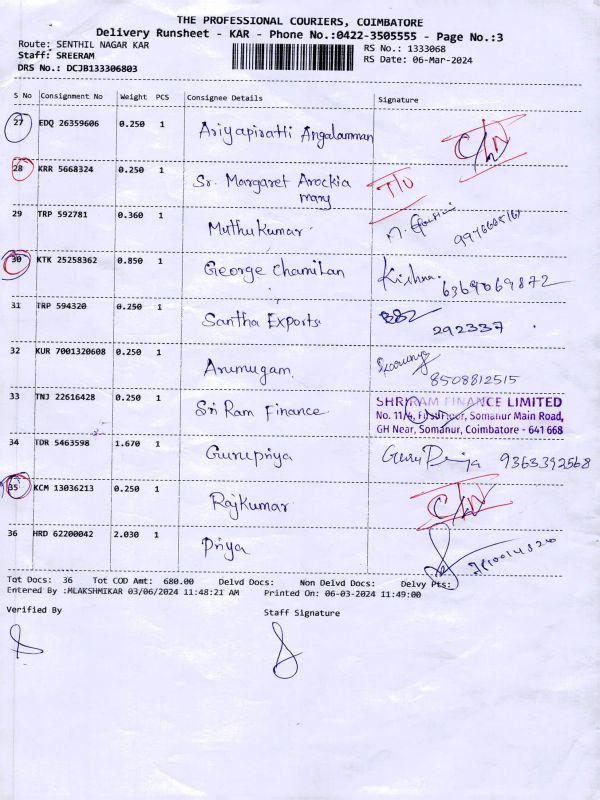 THE PROFESSIONAL COURIERS, COIMBATORE
Delivery Runsheet - KAR - Phone No.:0422-3505555 - Page No.:3
Route: SENTHIL NAGAR KAR
RS No.: 1333068
Staff: SREERAM
RS Date: 06-Mar-2024
DRS No.: DCJB133306803
S No Consignment No Weight PCS Consignee Details Signature
27 EDQ 26359606 0.250 1 Ariyapiratti Angalamman C/N
28 KRR 5668324 0.250 1 Sr. Margaret Arockia
mary
29 TRP 592781 0.360 1 Muthukumar
30 KTK 25258362 0.850 1 George Chamilan Krishna.
6369069872
31 TRP 594320 0.250 1 Santha Exports
292337
32 KUR 7001320608 0.250 1 Arumugam.
8508812515
33 TNJ 22616428 0.250 1 Sri Ram Finance SHRIRAM FINANCE LIMITED
No. 11/4, First Floor, Somanur Main Road,
GH Near, Somanur, Coimbatore - 641 668
34 TDR 5463598 1.670 1 Gurupriya Guru Priya 9363392568
35 KCM 13036213 0.250 1 Rajkumar C/N
36 HRD 62200042 2.030 1 Priya
Tot Docs: 36 Tot COD Amt: 680.00 Delvd Docs: Non Delvd Docs: Delvy Pts:
Entered By :MLAKSHMIKAR 03/06/2024 11:48:21 AM Printed On: 06-03-2024 11:49:00
Verified By Staff Signature